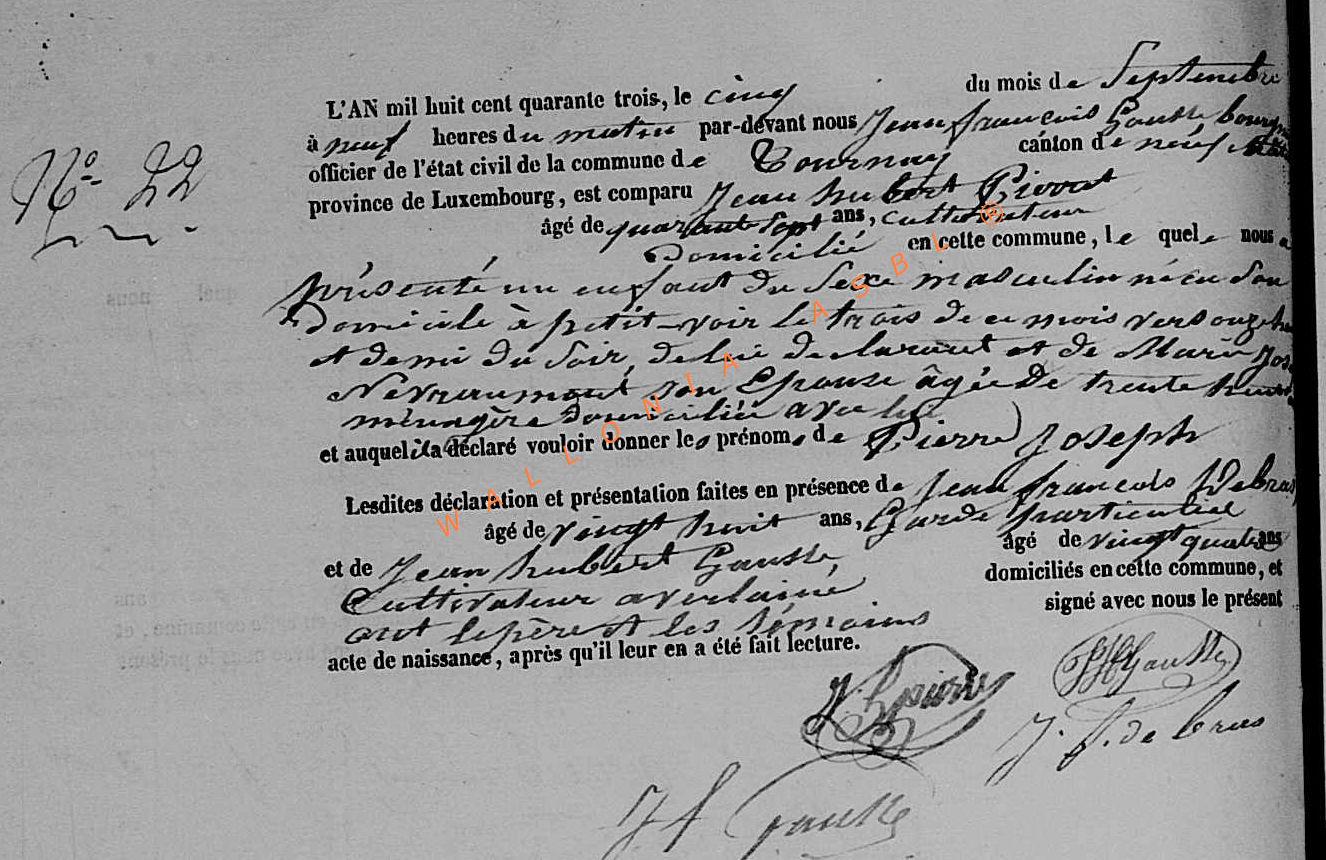 L'AN mil huit cent quarante trois, le cinq du mois de Septembre
à neuf heures du matin par-devant nous Jean françois Gausse bourgm
officier de l'état civil de la commune de Tournay canton de neuf
Nº 22
province de Luxembourg, est comparu Jean hubert
âgé de quarante sept ans, cultivateur
Domicilié en cette commune, lequel nous a
présenté un enfant du Sexe masculin né en son
Domicile à petit-voir le trois de ce mois vers onze
et demi du Soir, de lui declarant et de Marie Jos
Nevraumont son Epouse âgée De trente
ménagère Domiciliée avec lui
et auquel il a déclaré vouloir donner les prénoms de Pierre Joseph
Lesdites déclaration et présentation faites en présence de Jean françois Debras
âgé de vingt huit ans, Garde particulier
et de Jean hubert Gausse, âgé de vingt quatre ans
Cultivateur a verlaine domiciliés en cette commune, et
ont le père et les témoins signé avec nous le présent
acte de naissance, après qu'il leur en a été fait lecture.
JHGausse
J. f. de bras
J f Gausse
WALLONIA ASBL ©